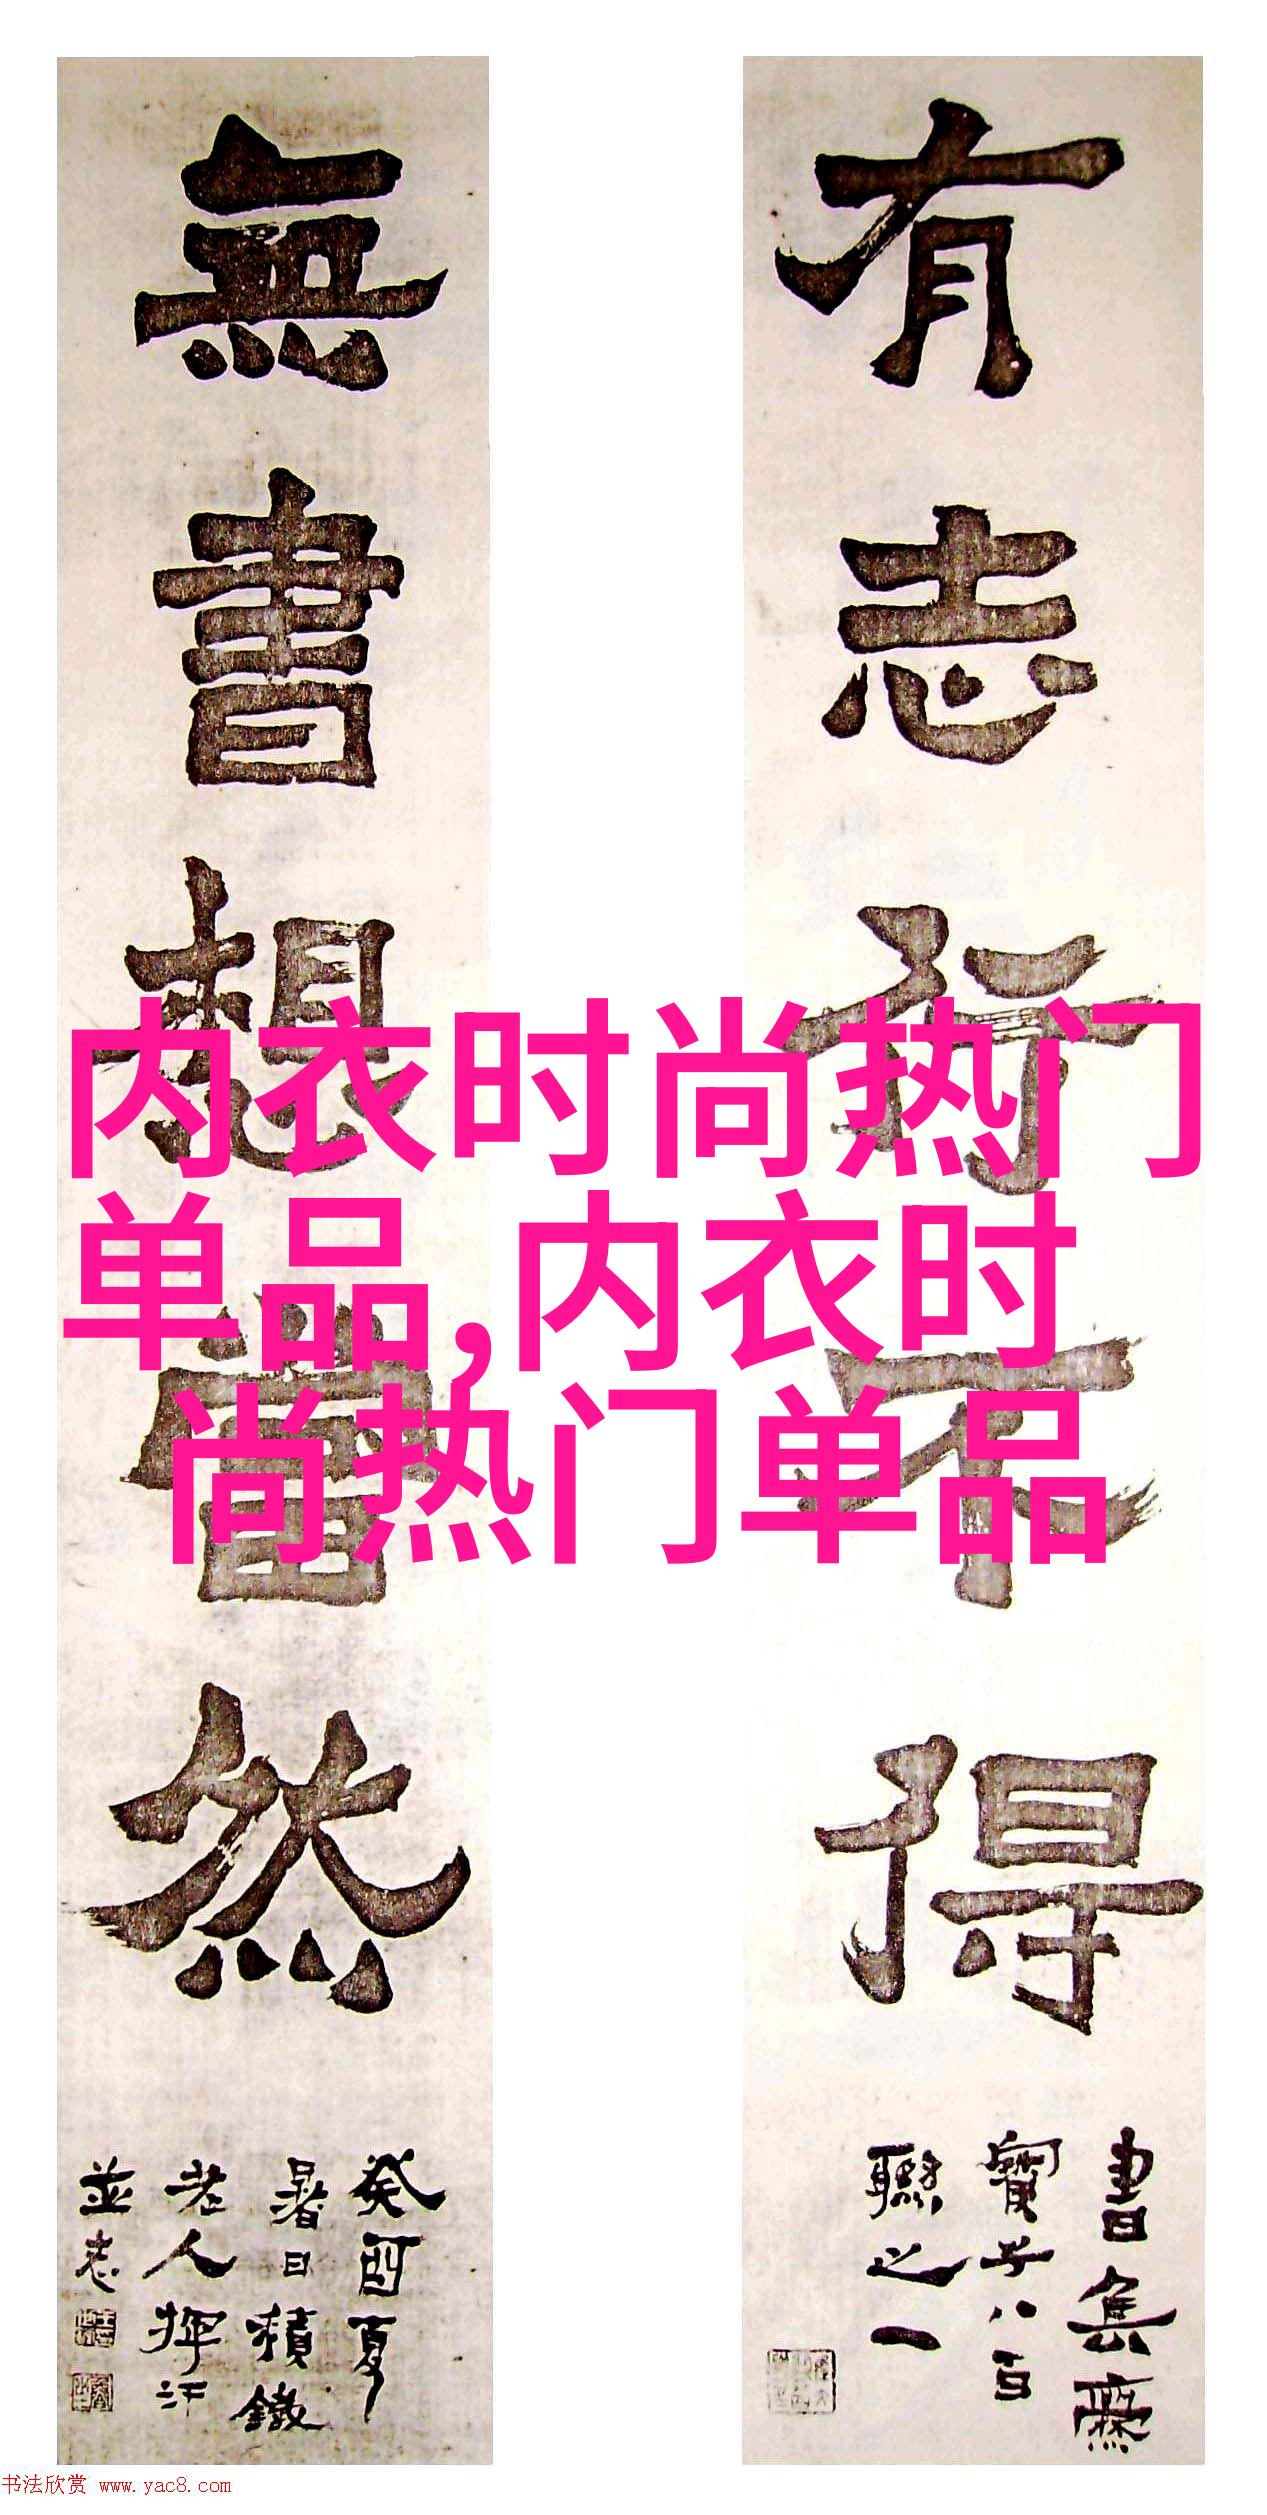 有志行不得
書集爨
寶子八百
聯之一
無書想當然
癸酉夏
暑日積鐵
老人揮汗
並志
内衣时尚热门
单品,内衣时
尚热门单品
书法欣赏 www.yac8.com